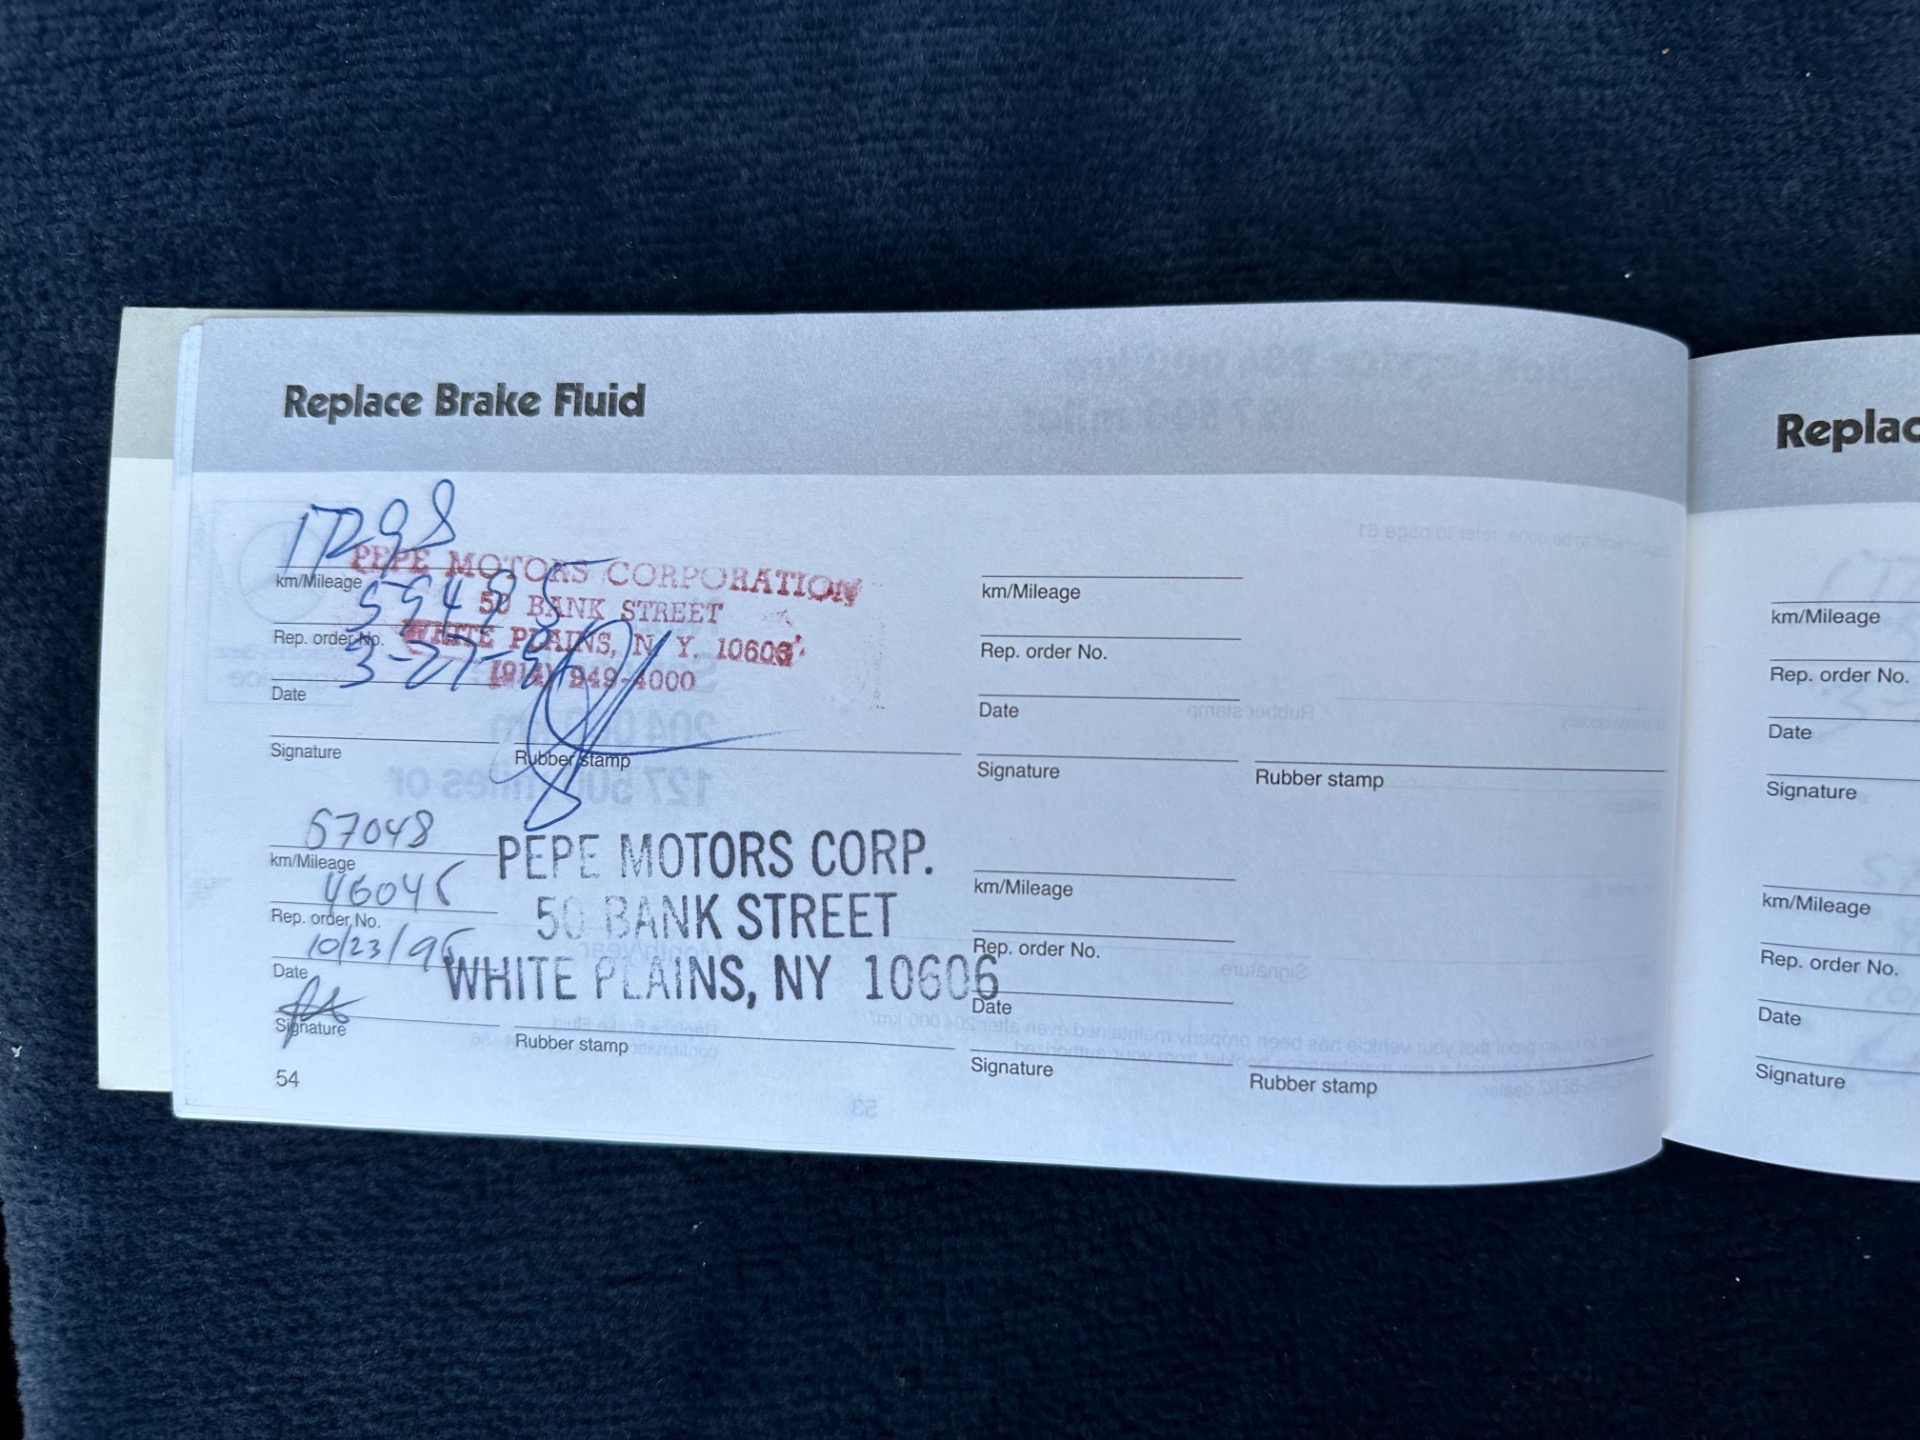 Replace Brake Fluid
17298
km/Mileage
PEPE MOTORS CORPORATION
50 BANK STREET
WHITE PLAINS, N. Y. 10606
(914) 949-4000
Rep. order No.
Date
Signature
Rubber stamp
57048
km/Mileage
Rep. order No.
10/23/96
Date
Signature
PEPE MOTORS CORP.
50 BANK STREET
WHITE PLAINS, NY 10606
Rubber stamp
54
km/Mileage
Rep. order No.
Date
Signature
Rubber stamp
km/Mileage
Rep. order No.
Date
Signature
Rubber stamp
Replac
km/Mileage
Rep. order No.
Date
Signature
km/Mileage
Rep. order No.
Date
Signature